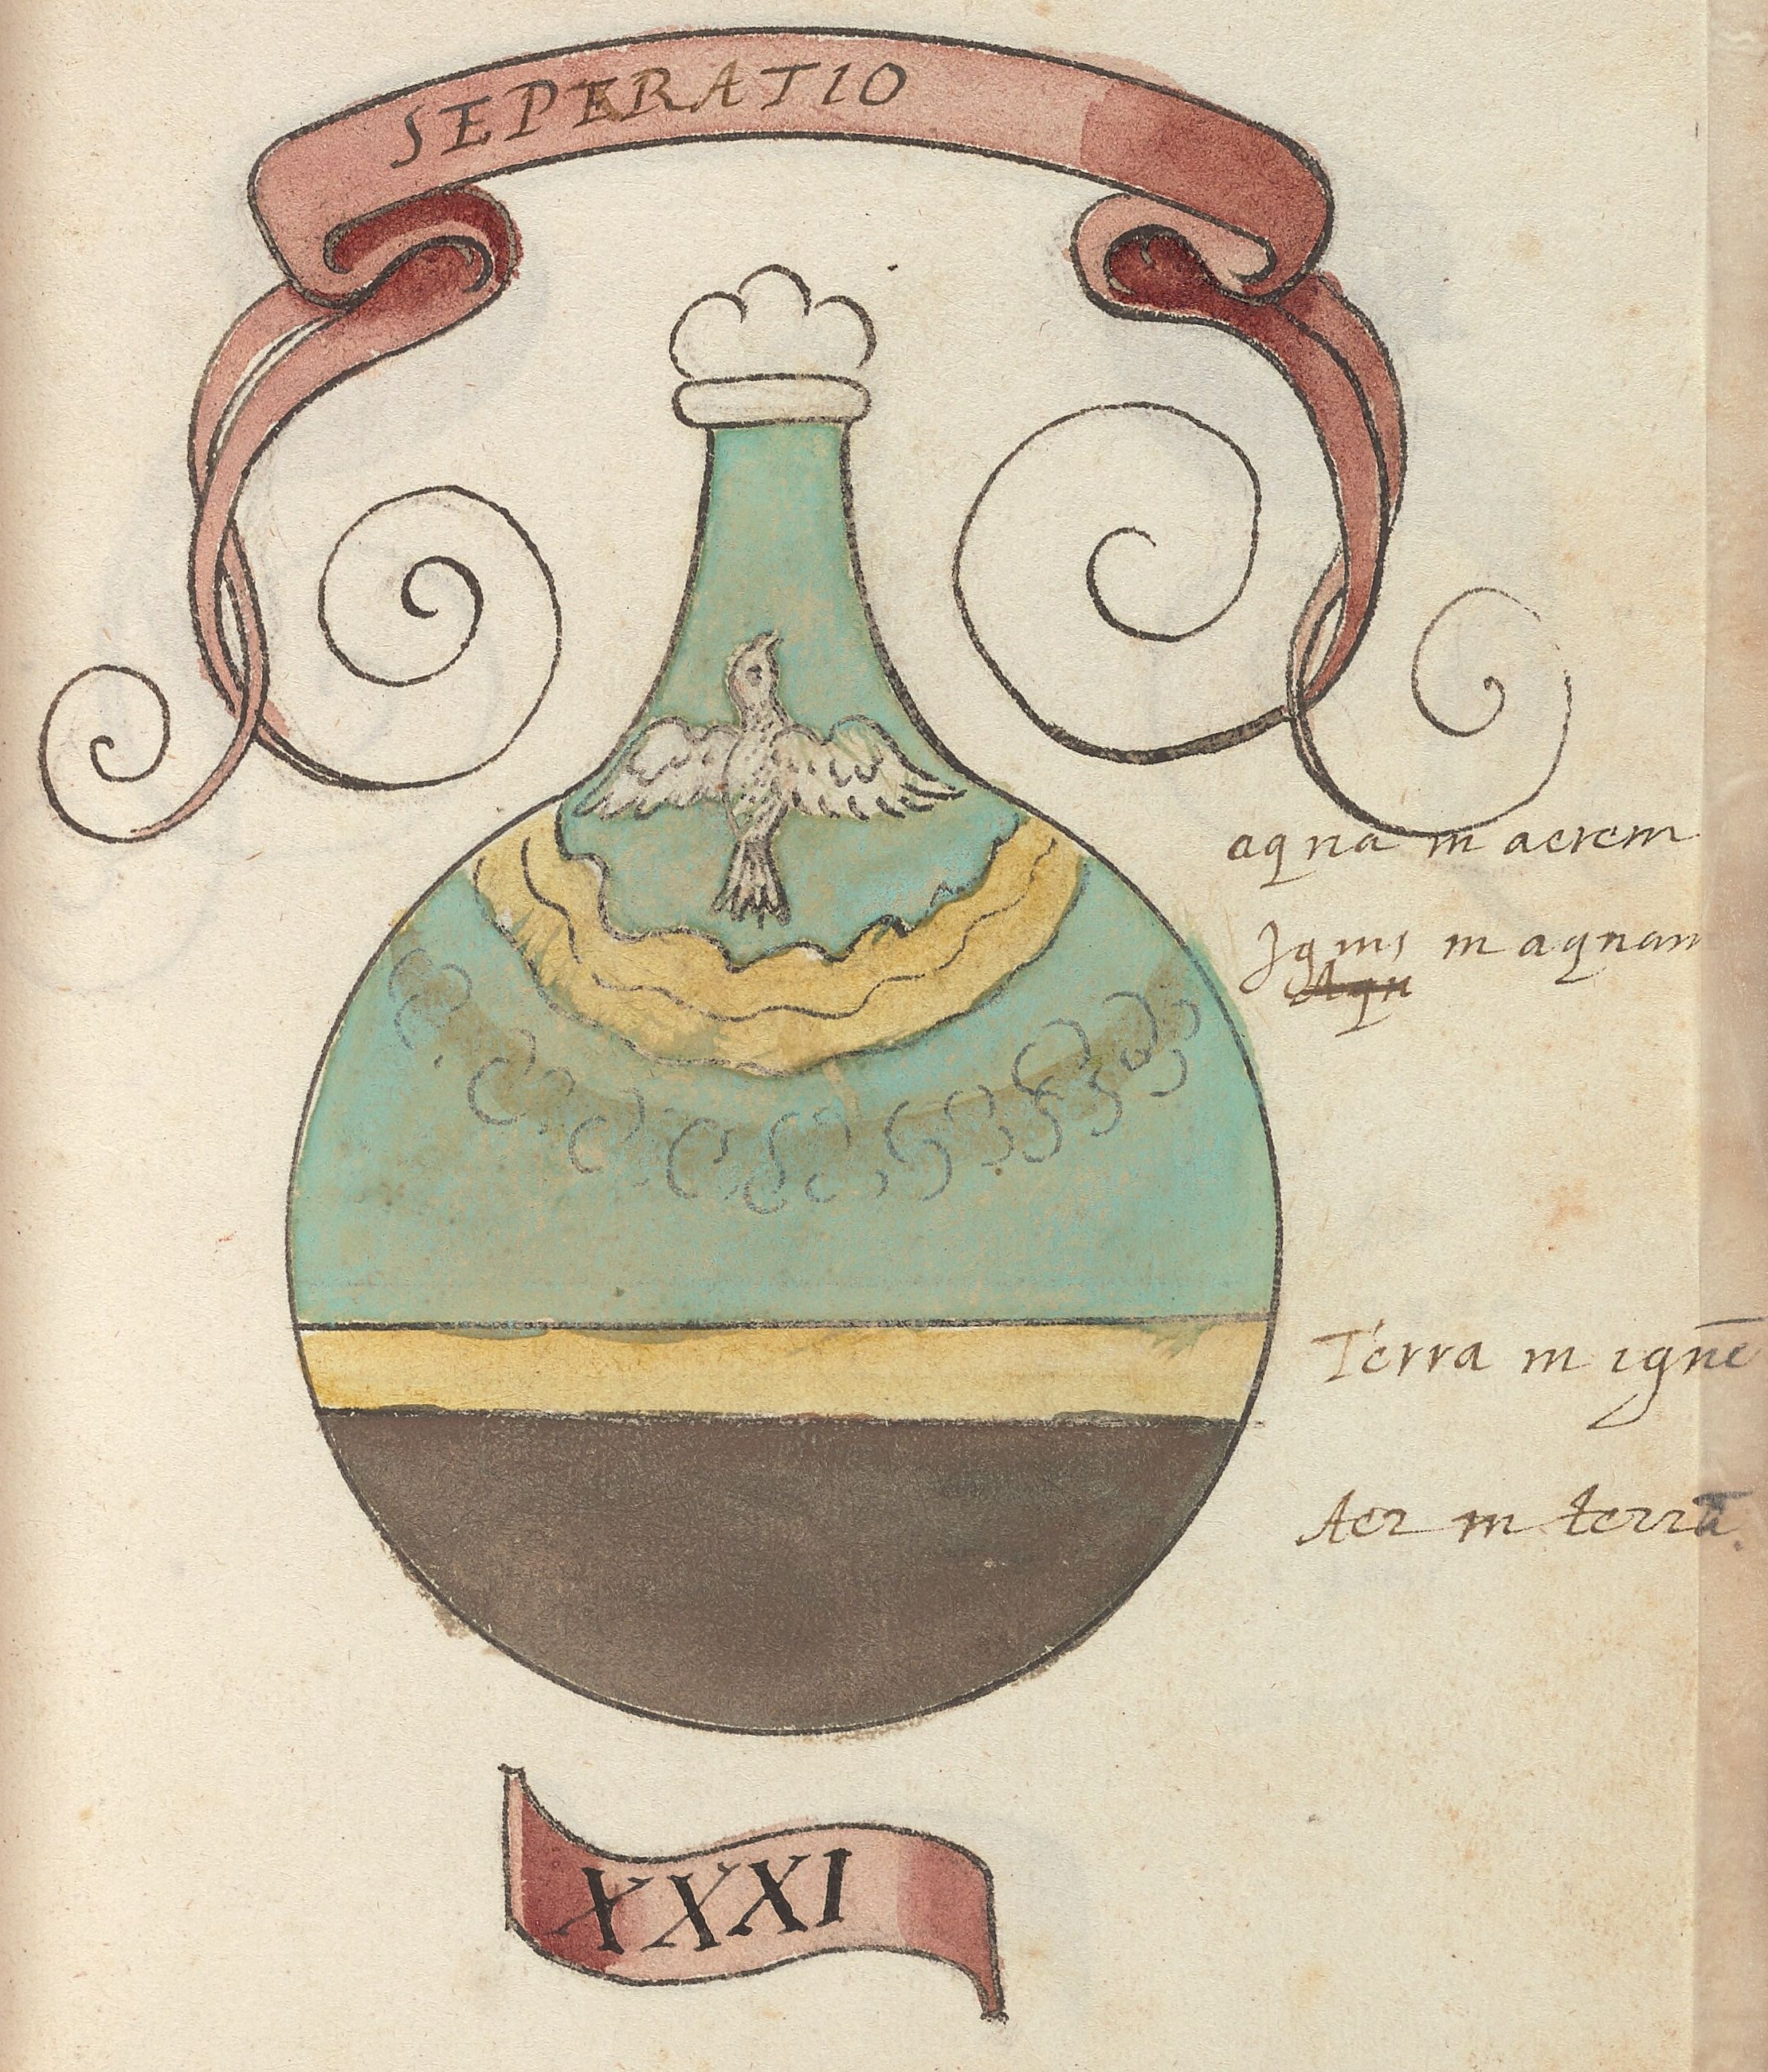 SEPERATIO
aqua in aerem
Ignis in aquam
Aqu
Terra in ignē
Aer in terrā.
XXXI